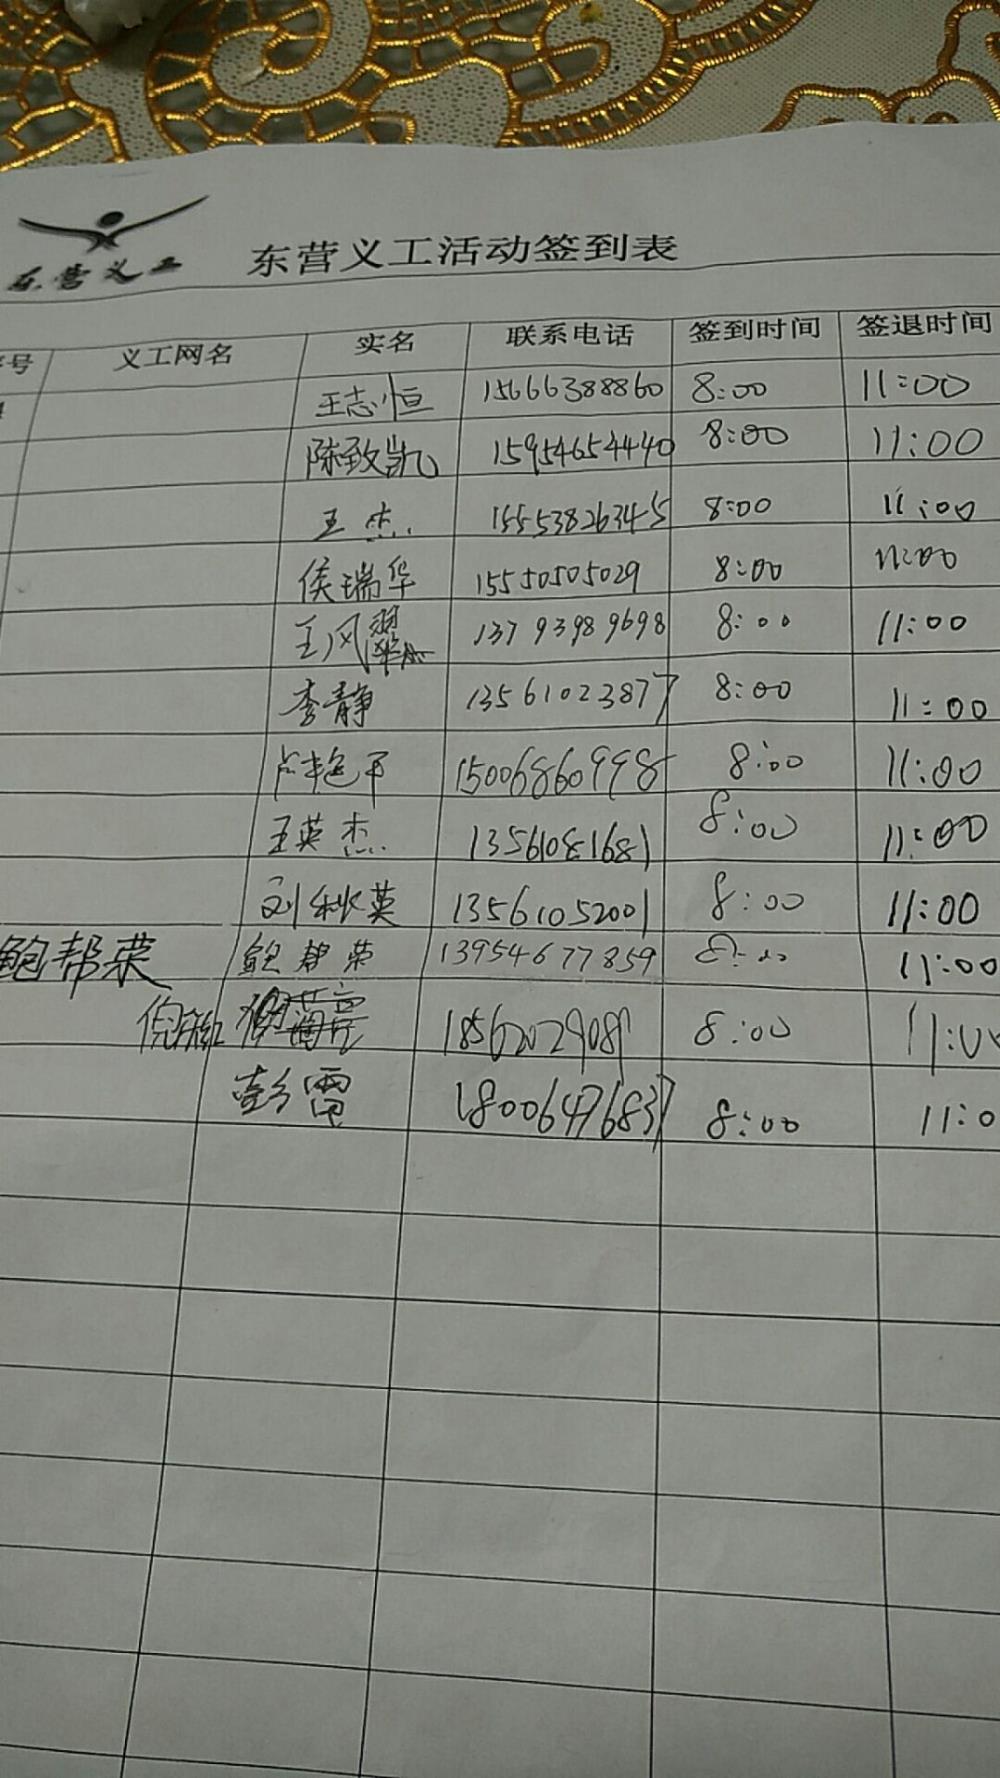 东营义工 东营义工活动签到表
号 义工网名 实名 联系电话 签到时间 签退时间
王志恒 15666388860 8:00 11:00
陈致凯 15954654440 8:00 11:00
王杰 15553826345 8:00 11:00
侯瑞华 15550505029 8:00 11:00
王风 13793989698 8:00 11:00
李静 13561023877 8:00 11:00
15006860998 8:00 11:00
王英杰 13561081681 8:00 11:00
刘秋英 13561052001 8:00 11:00
鲍帮荣 鲍帮荣 13954677859 8:00 11:00
倪 18562029089 8:00 11:00
彭雷 18006476837 8:00 11:0